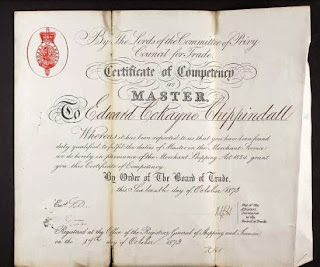 By The Lords of the Committee of Privy
Council for Trade.
Certificate of Competency
as
MASTER.
To Edward Cokayne Chippindall
Whereas it has been reported to us that you have been found
duly qualified to fulfil the duties of Master in the Merchant Service
we do hereby in pursuance of the Merchant Shipping Act 1854, grant
you this Certificate of Competency.
By Order of The Board of Trade,
this Sixteenth day of October 1873
One of the
Assistant
Secretaries
to the
Board of Trade.
Registered at the Office of the Registrar General of Shipping and Seamen
on the day of October 1873